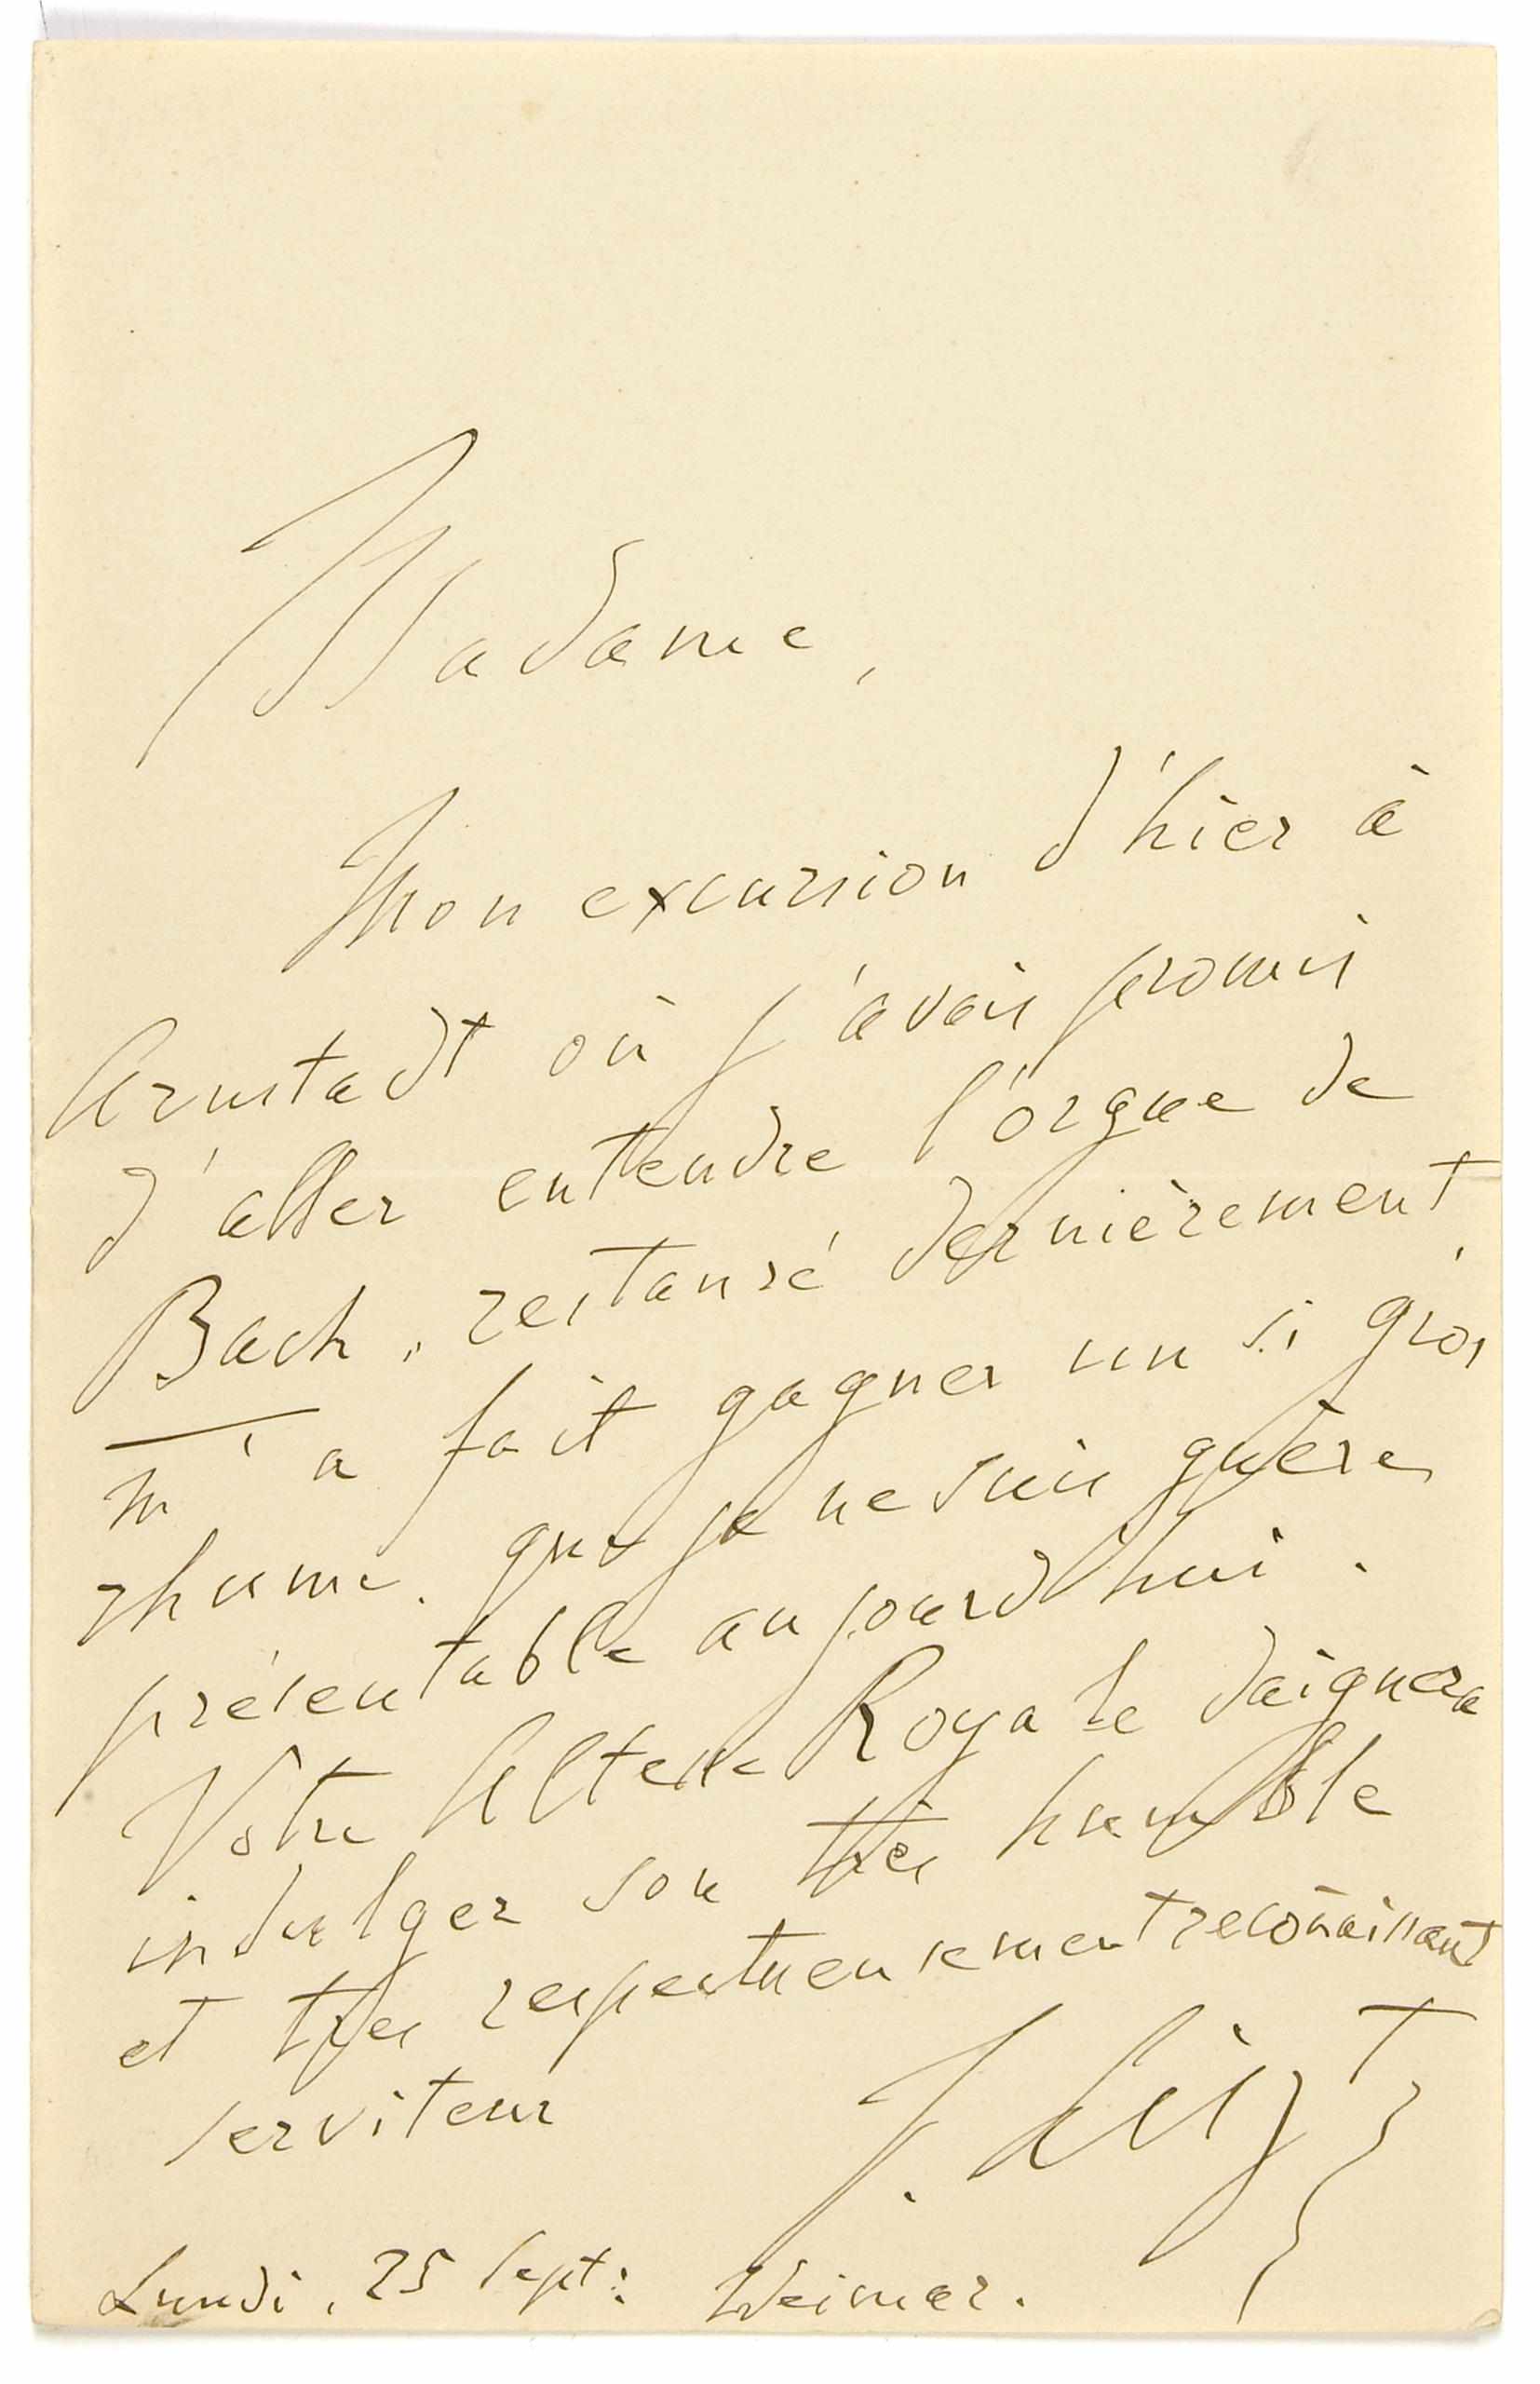 Madame,
Mon excursion d'hier à
Arnstadt où j'avais promis
d'aller entendre l'orgue de
Bach, restauré dernièrement,
m'a fait gagner un si gros
rhume, que je ne suis guère
présentable aujourd'hui.
Votre Altesse Royale daignera
indulger son très humble
et très respectueusement reconaissant
serviteur
F. Liszt
Lundi, 25 Sept: Weimar.